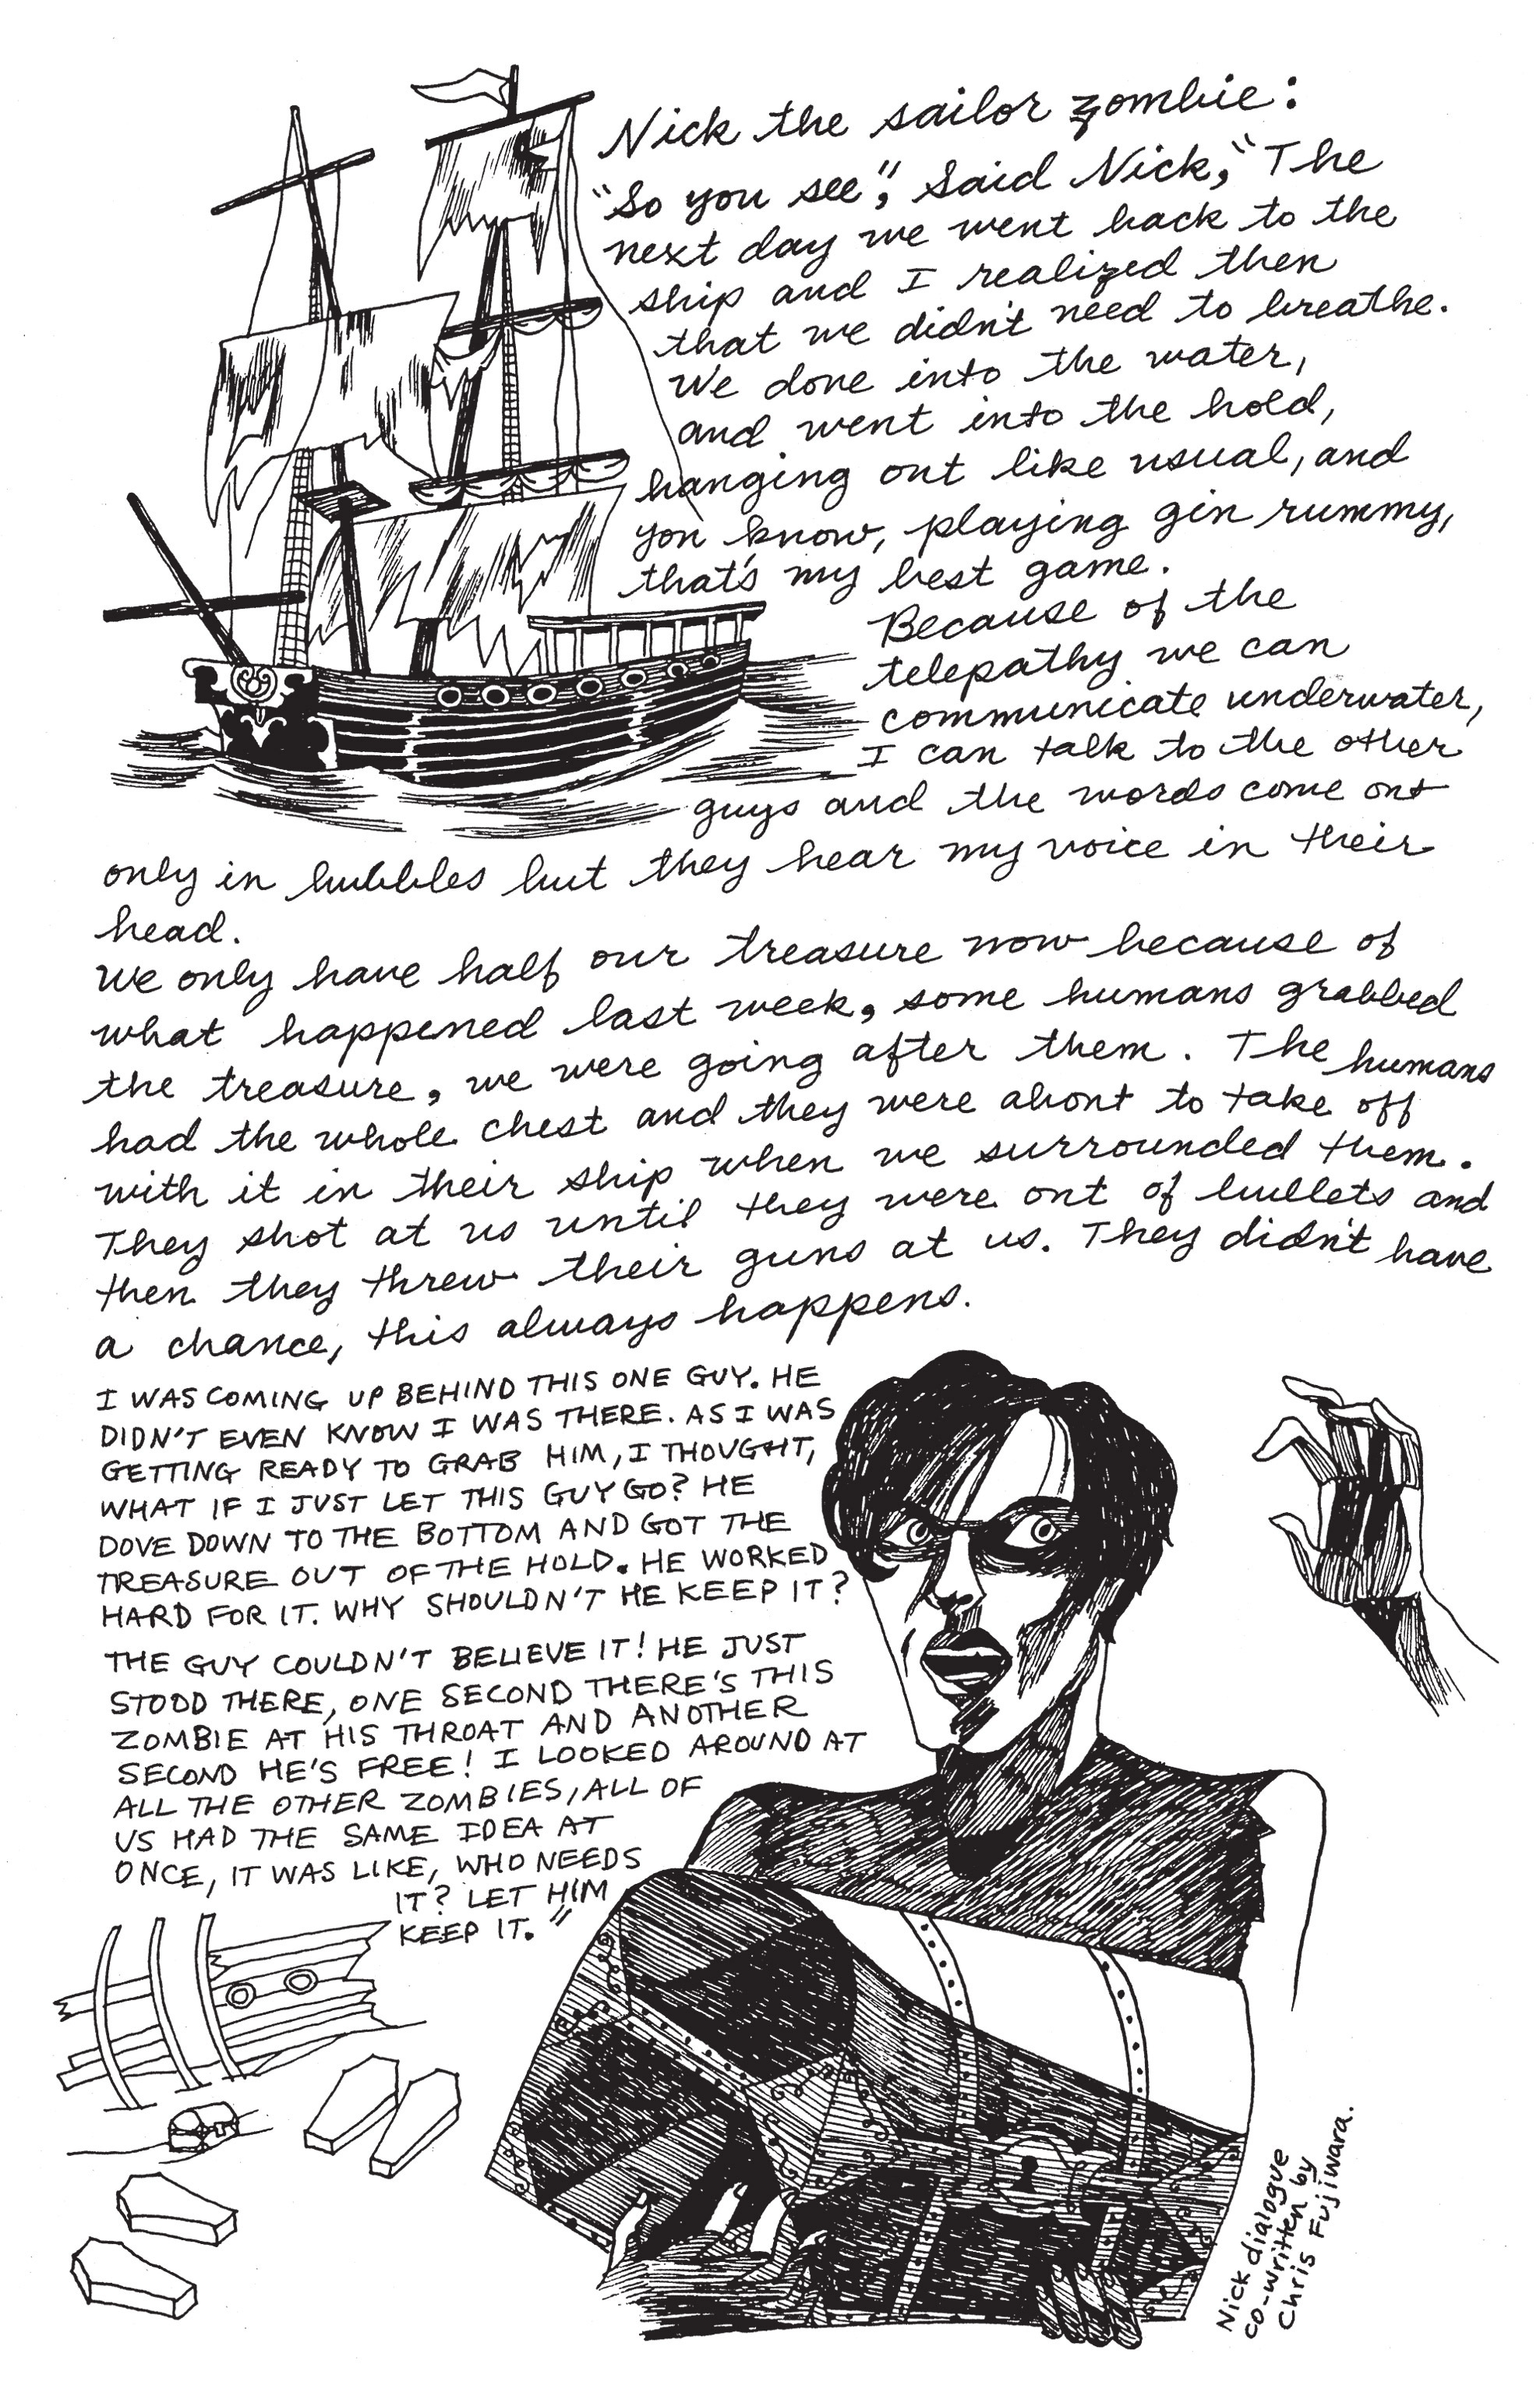 Nick the sailor zombie:
"So you see", said Nick, "The
next day we went back to the
ship and I realized then
that we didn't need to breathe.
We dove into the water,
and went into the hold,
hanging out like usual, and
you know, playing gin rummy,
that's my best game.
Because of the
telepathy we can
communicate underwater,
I can talk to the other
guys and the words come out
only in bubbles but they hear my voice in their
head.
We only have half our treasure now because of
what happened last week, some humans grabbed
the treasure, we were going after them. The humans
had the whole chest and they were about to take off
with it in their ship when we surrounded them.
They shot at us until they were out of bullets and
then they threw their guns at us. They didn't have
a chance, this always happens.
I WAS COMING UP BEHIND THIS ONE GUY. HE
DIDN'T EVEN KNOW I WAS THERE. AS I WAS
GETTING READY TO GRAB HIM, I THOUGHT,
WHAT IF I JUST LET THIS GUY GO? HE
DOVE DOWN TO THE BOTTOM AND GOT THE
TREASURE OUT OF THE HOLD. HE WORKED
HARD FOR IT. WHY SHOULDN'T HE KEEP IT?
THE GUY COULDN'T BELIEVE IT! HE JUST
STOOD THERE, ONE SECOND THERE'S THIS
ZOMBIE AT HIS THROAT AND ANOTHER
SECOND HE'S FREE! I LOOKED AROUND AT
ALL THE OTHER ZOMBIES, ALL OF
US HAD THE SAME IDEA AT
ONCE, IT WAS LIKE, WHO NEEDS
IT? LET HIM
KEEP IT."
Nick dialogue
co-written by
Chris Fujiwara.